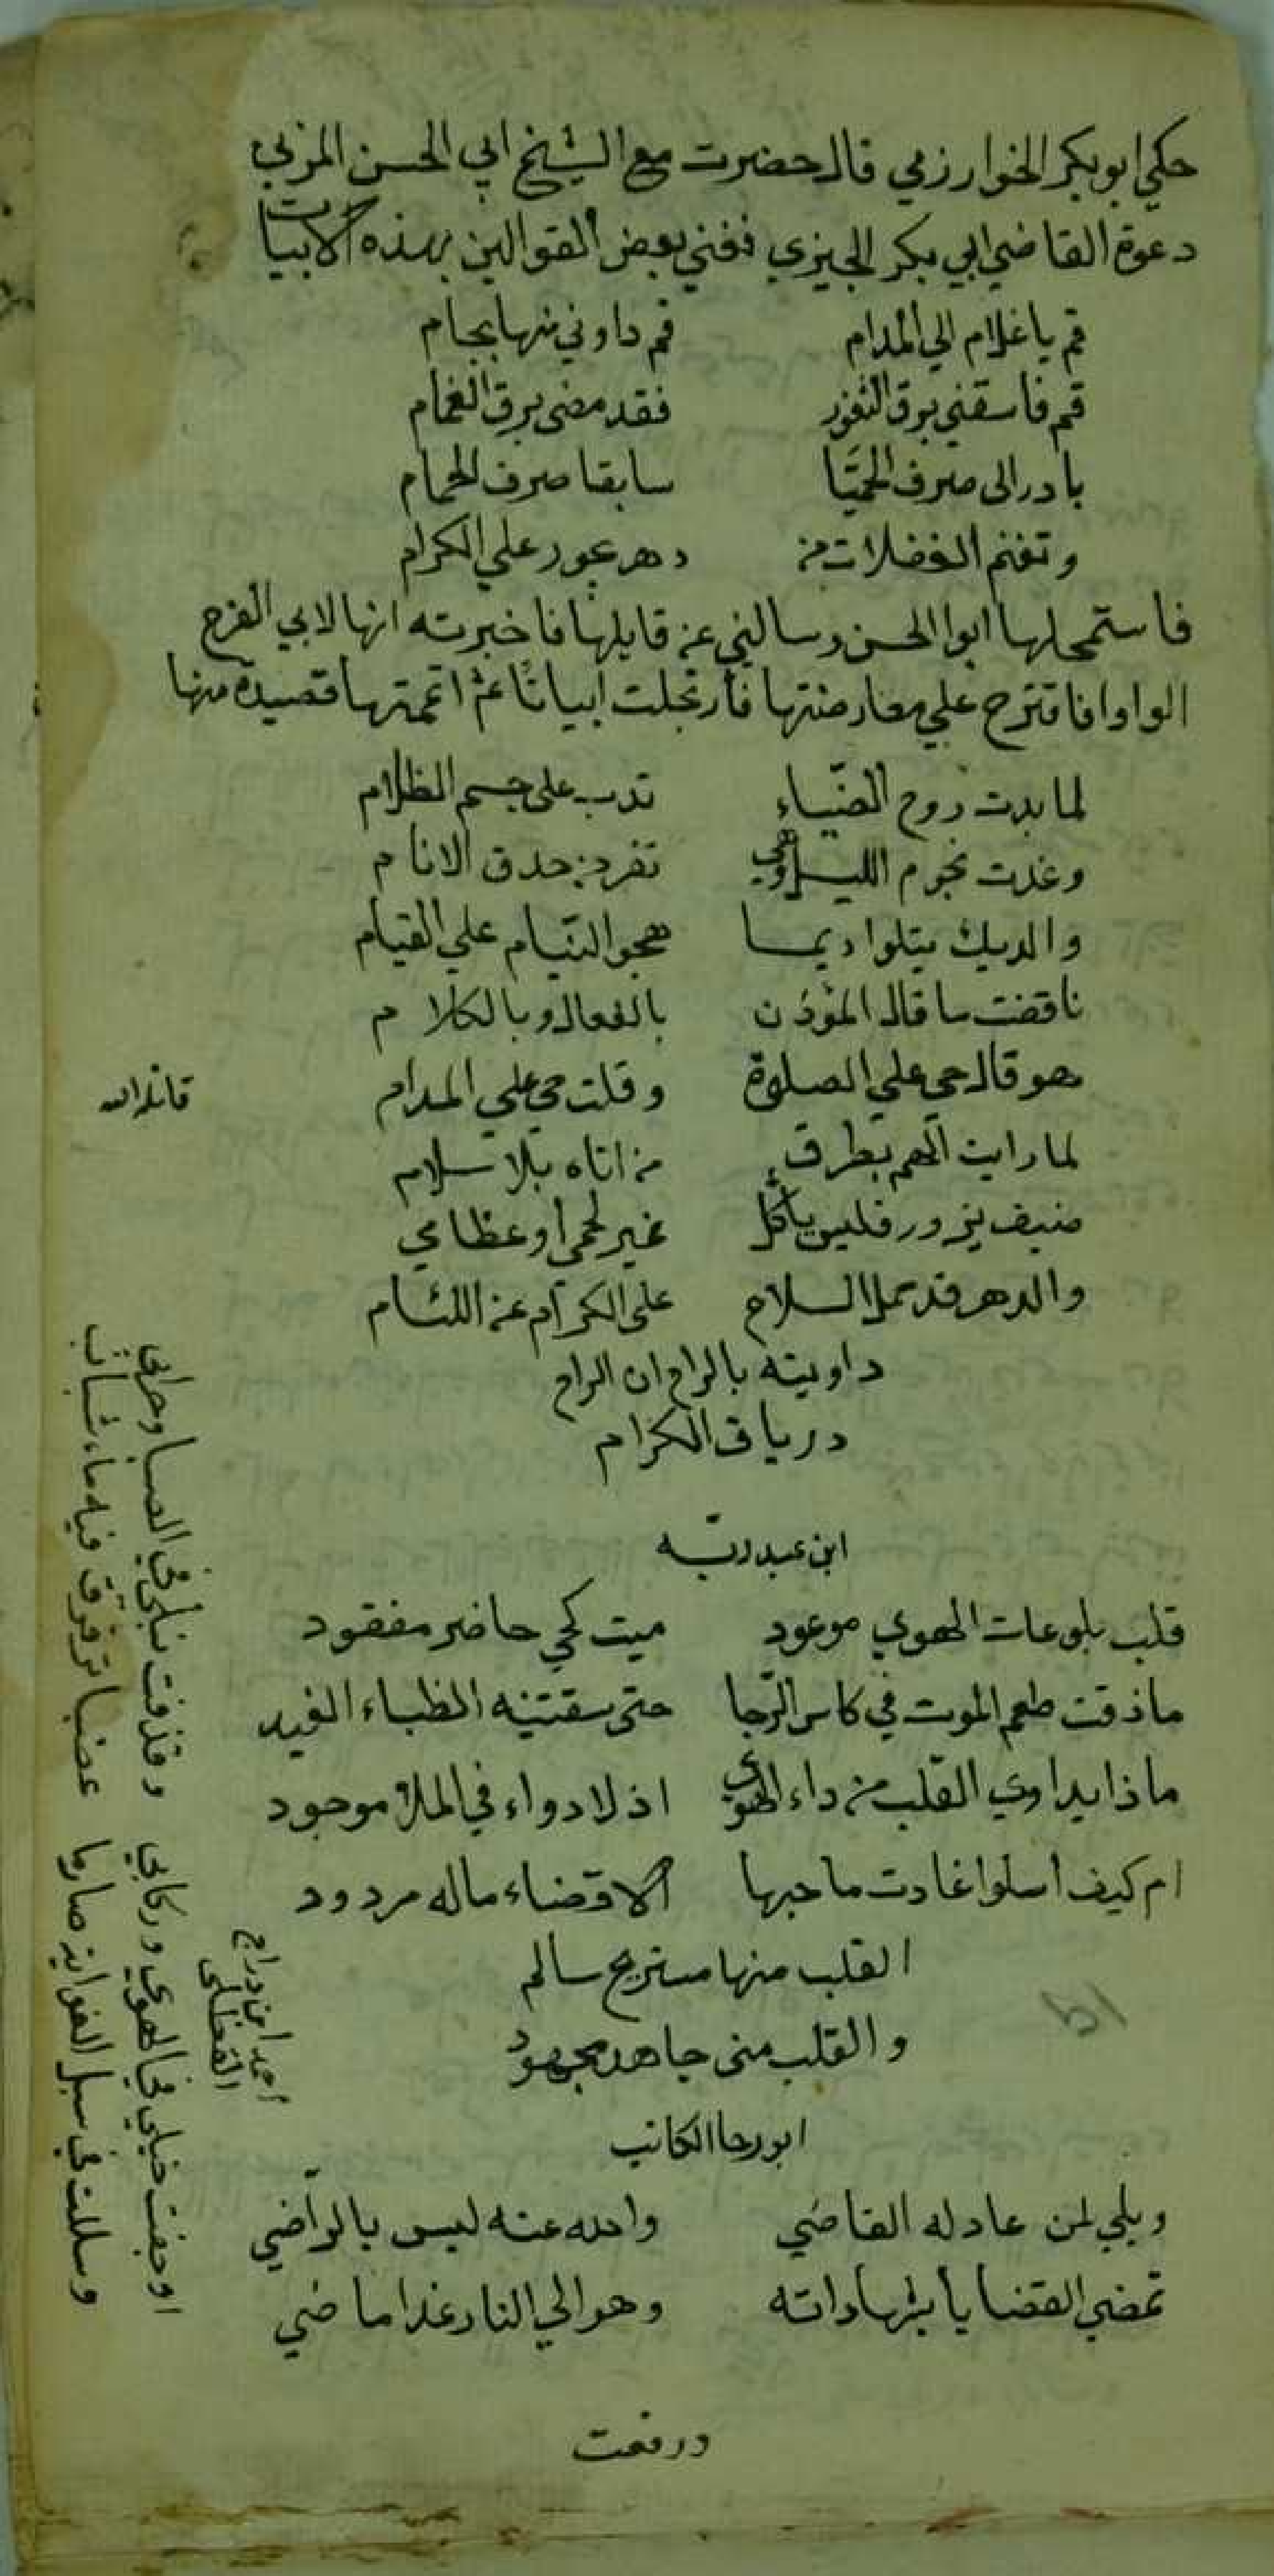 حكي ابوبكر الخوارزمي قال حضرت مع الشيخ ابي الحسن المزني
دعوة القاضي ابي بكر الجيزي فغني بعض القوالين بهذه الابيات
قم يا غلام الي المدام قم داوني منها بجام
قم فاسقني برق الثغور فقد مضى برق الغمام
بادر الى صرف الحميّا سابقا صرف الحمام
وتغنم الغفلات من دهر يجور علي الكرام
فاستمحلها ابو الحسن وسالني عن قايلها فاخبرته انها لابي الفرج
الواوا فاقترح علي معارضتها فارتجلت ابياتا ثم اتممتها قصيدة منها
لما بدت روح الضّياء تدب على جسم الظلام
وغدت نجوم الليل وهي تفر من حدق الانام
والديك يتلوا ديما هجو النيّام علي القيام
ناقضت ما قال المؤذن بالفعال وبالكلام
هو قال حي علي الصلوة وقلت حي علي المدام
قاتله الله
لما رايت الهم يطرق من اتاه بلا سلام
ضيف يزور فليس ياكل غير لحمي او عظامي
والدهر قد حمل السلاح على الكرام عن اللئام
داويته بالراح ان الراح
درياق الكرام
ابن عبد ربّه
قلب بلوعات الهوي موعود ميت كحي حاضر مفقود
ما ذقت طعم الموت في كاس الرّجا حتى سقتنيه الظباء الغيد
ماذا يداوي القلب من داء الهوى اذ لا دواء في الملا موجود
ام كيف اسلوا غادت ما حبها الا قضاء ماله مردود
القلب منها مستريح سالم
والقلب مني جاهد مجهود
ابو رجا الكاتب
ويلي لمن عادله القاضي والله عنه ليس بالراضي
تمضي القضايا بشهاداته وهو الي النار غدا ماضي
ورفعت
احمد ابن دراج
القسطلى
اوجفت خيلي في الهوي وركابي وقذفت نبلي في الصبا وحرابى
وسللت في سبل الغواية صارما عضبا ترقرق فيه ماء شبابى